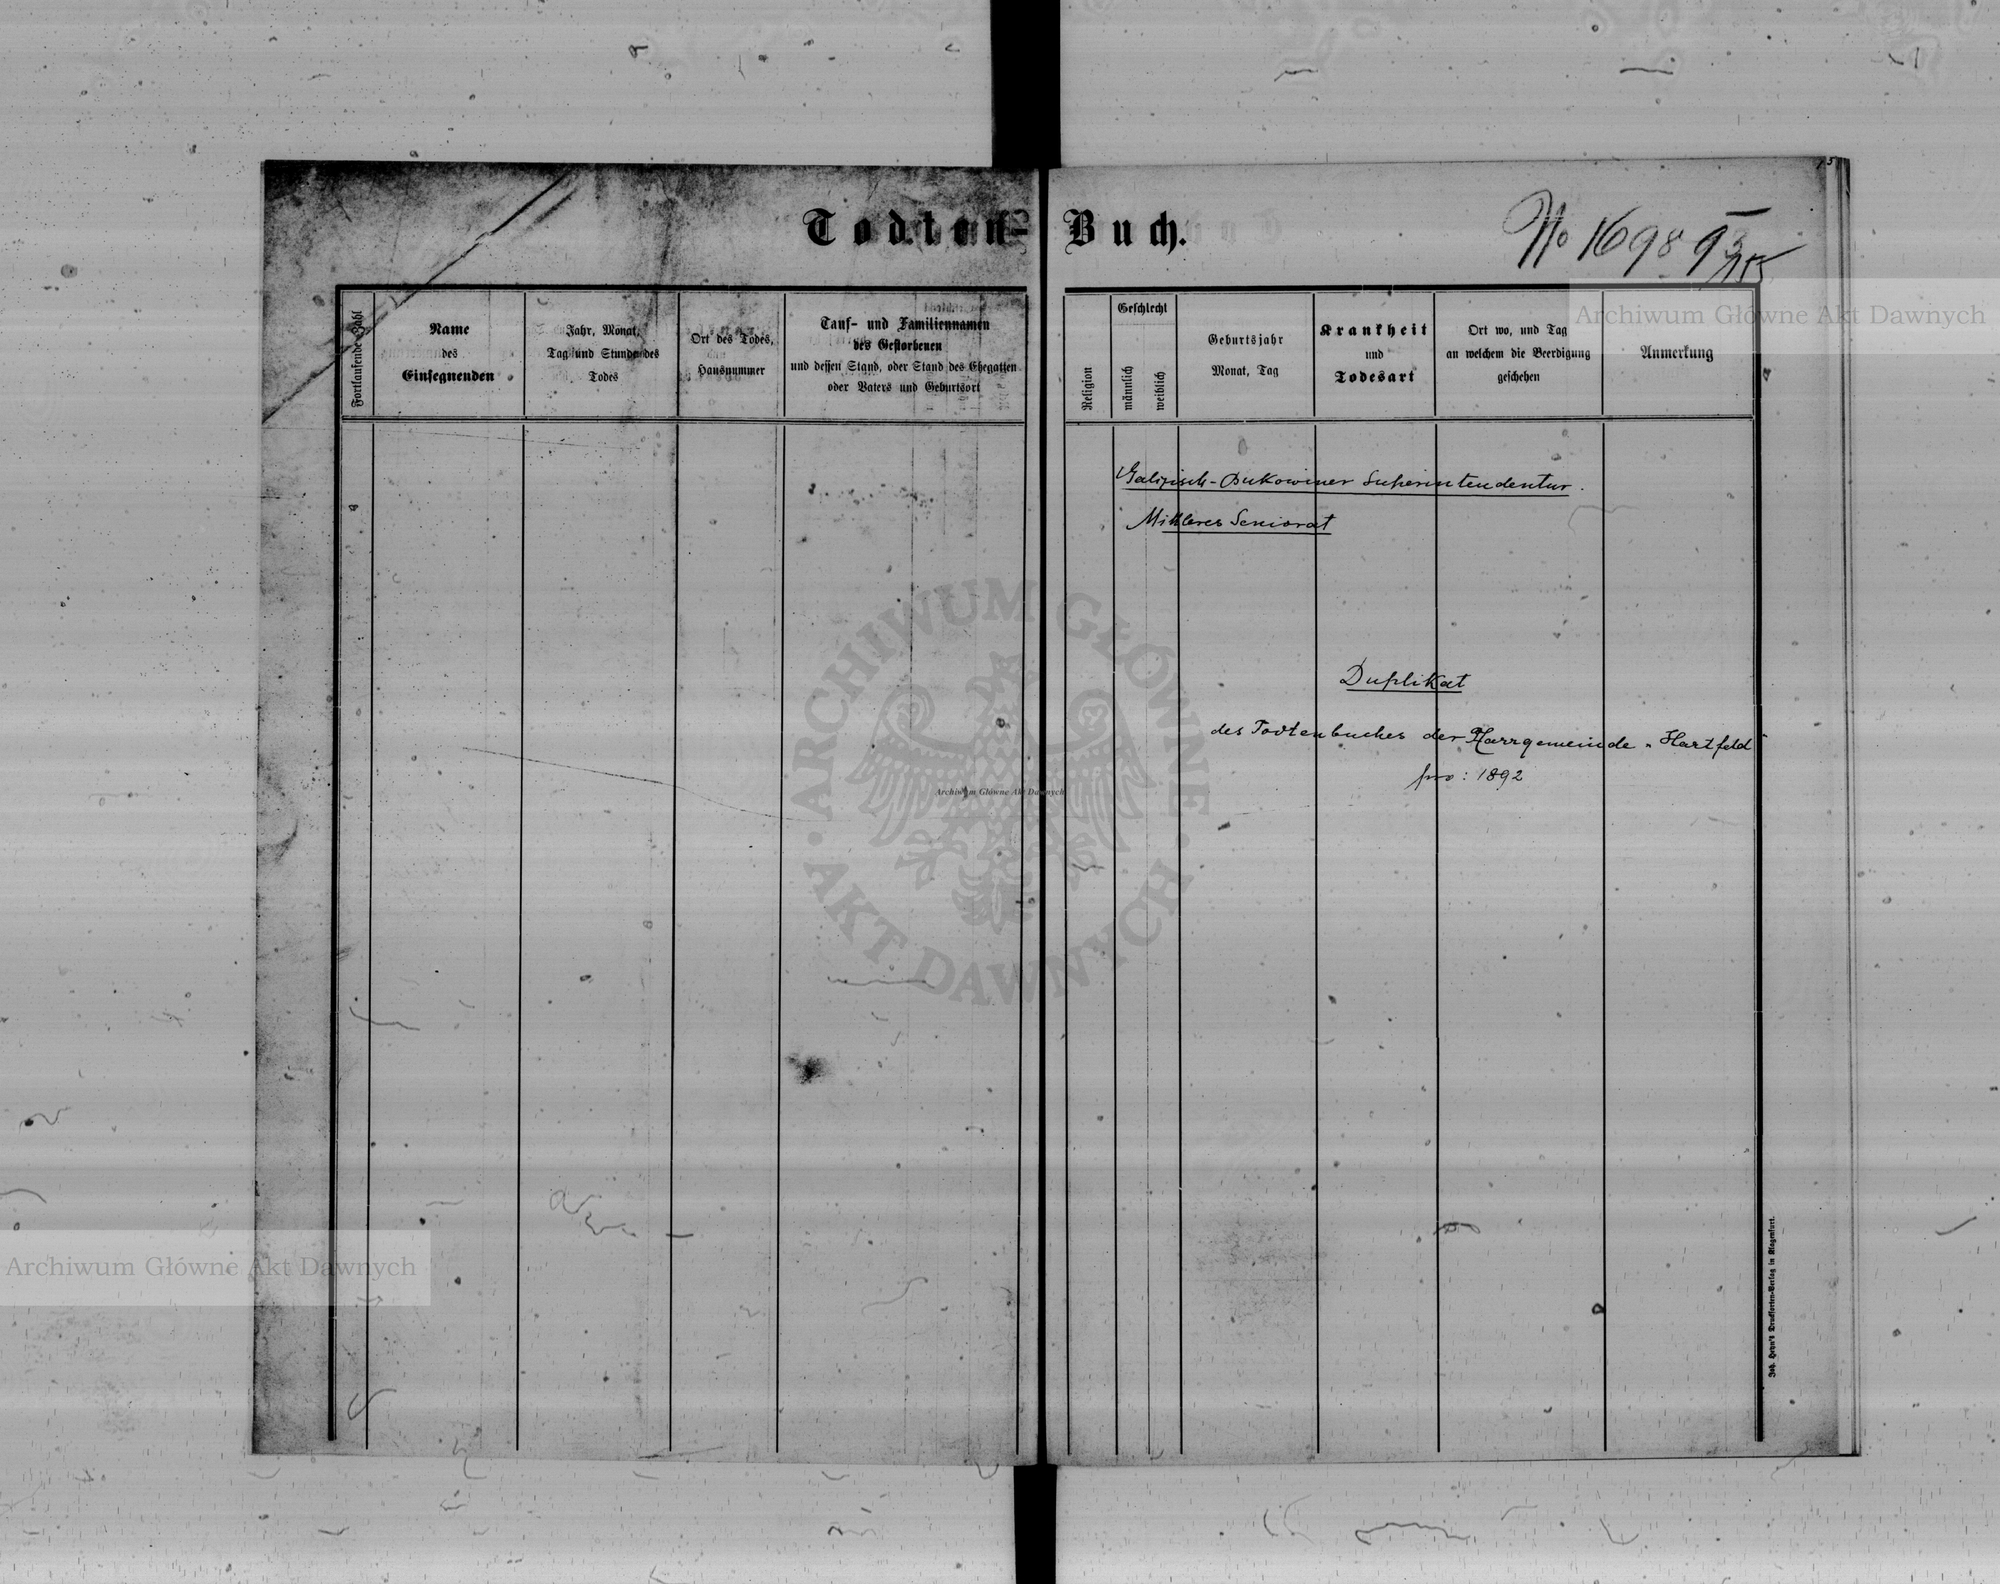 Todten-Buch.
No 16989
Fortlaufende Zahl
Name
des
Einsegnenden
Jahr, Monat,
Tag und Stunde des
Todes
Ort des Todes,
Hausnummer
Tauf- und Familiennamen
des Gestorbenen
und dessen Stand, oder Stand des Ehegatten
oder Vaters und Geburtsort
Religion
Geschlecht
männlich
weiblich
Geburtsjahr
Monat, Tag
Krankheit
und
Todesart
Ort wo, und Tag
an welchem die Beerdigung
geschehen
Anmerkung
Galizisch-Bukowiner Superintendentur.
Mittleres Seniorat
Duplikat
des Todtenbuches der Pfarrgemeinde „Hartfeld"
pro: 1892
Joh. Heyn's Drucksorten-Verlag in Klagenfurt.
Archiwum Główne Akt Dawnych
ARCHIWUM GŁÓWNE
AKT DAWNYCH
Archiwum Główne Akt Dawnych
Archiwum Główne Akt Dawnych